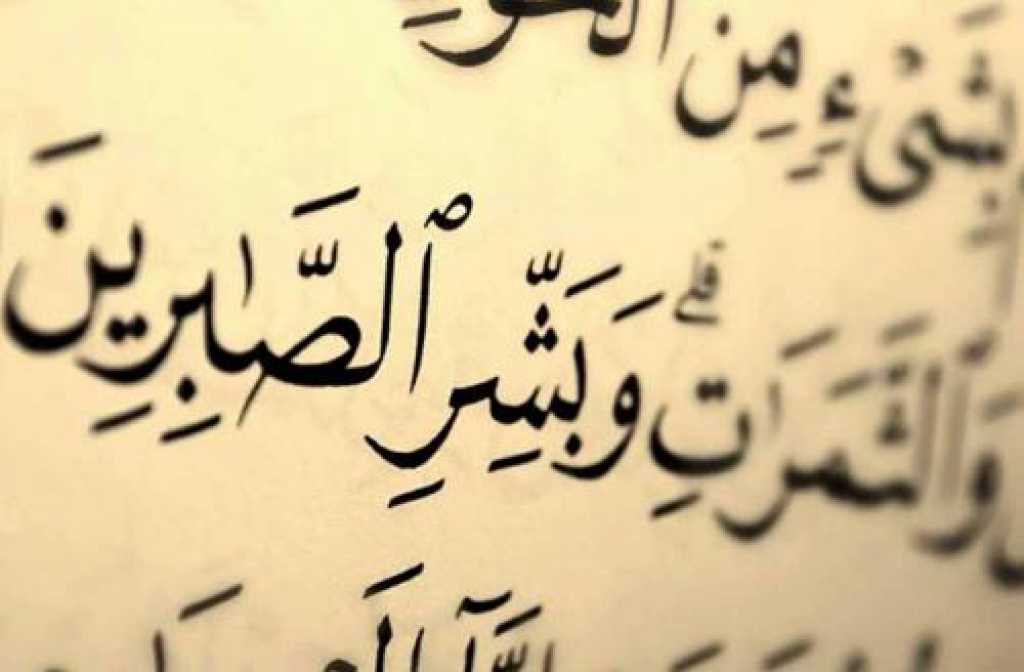 بِشَىْءٍ مِنَ الْخَوْفِ
وَٱلثَّمَرَٰتِ ۗ وَبَشِّرِ ٱلصَّـٰبِرِينَ